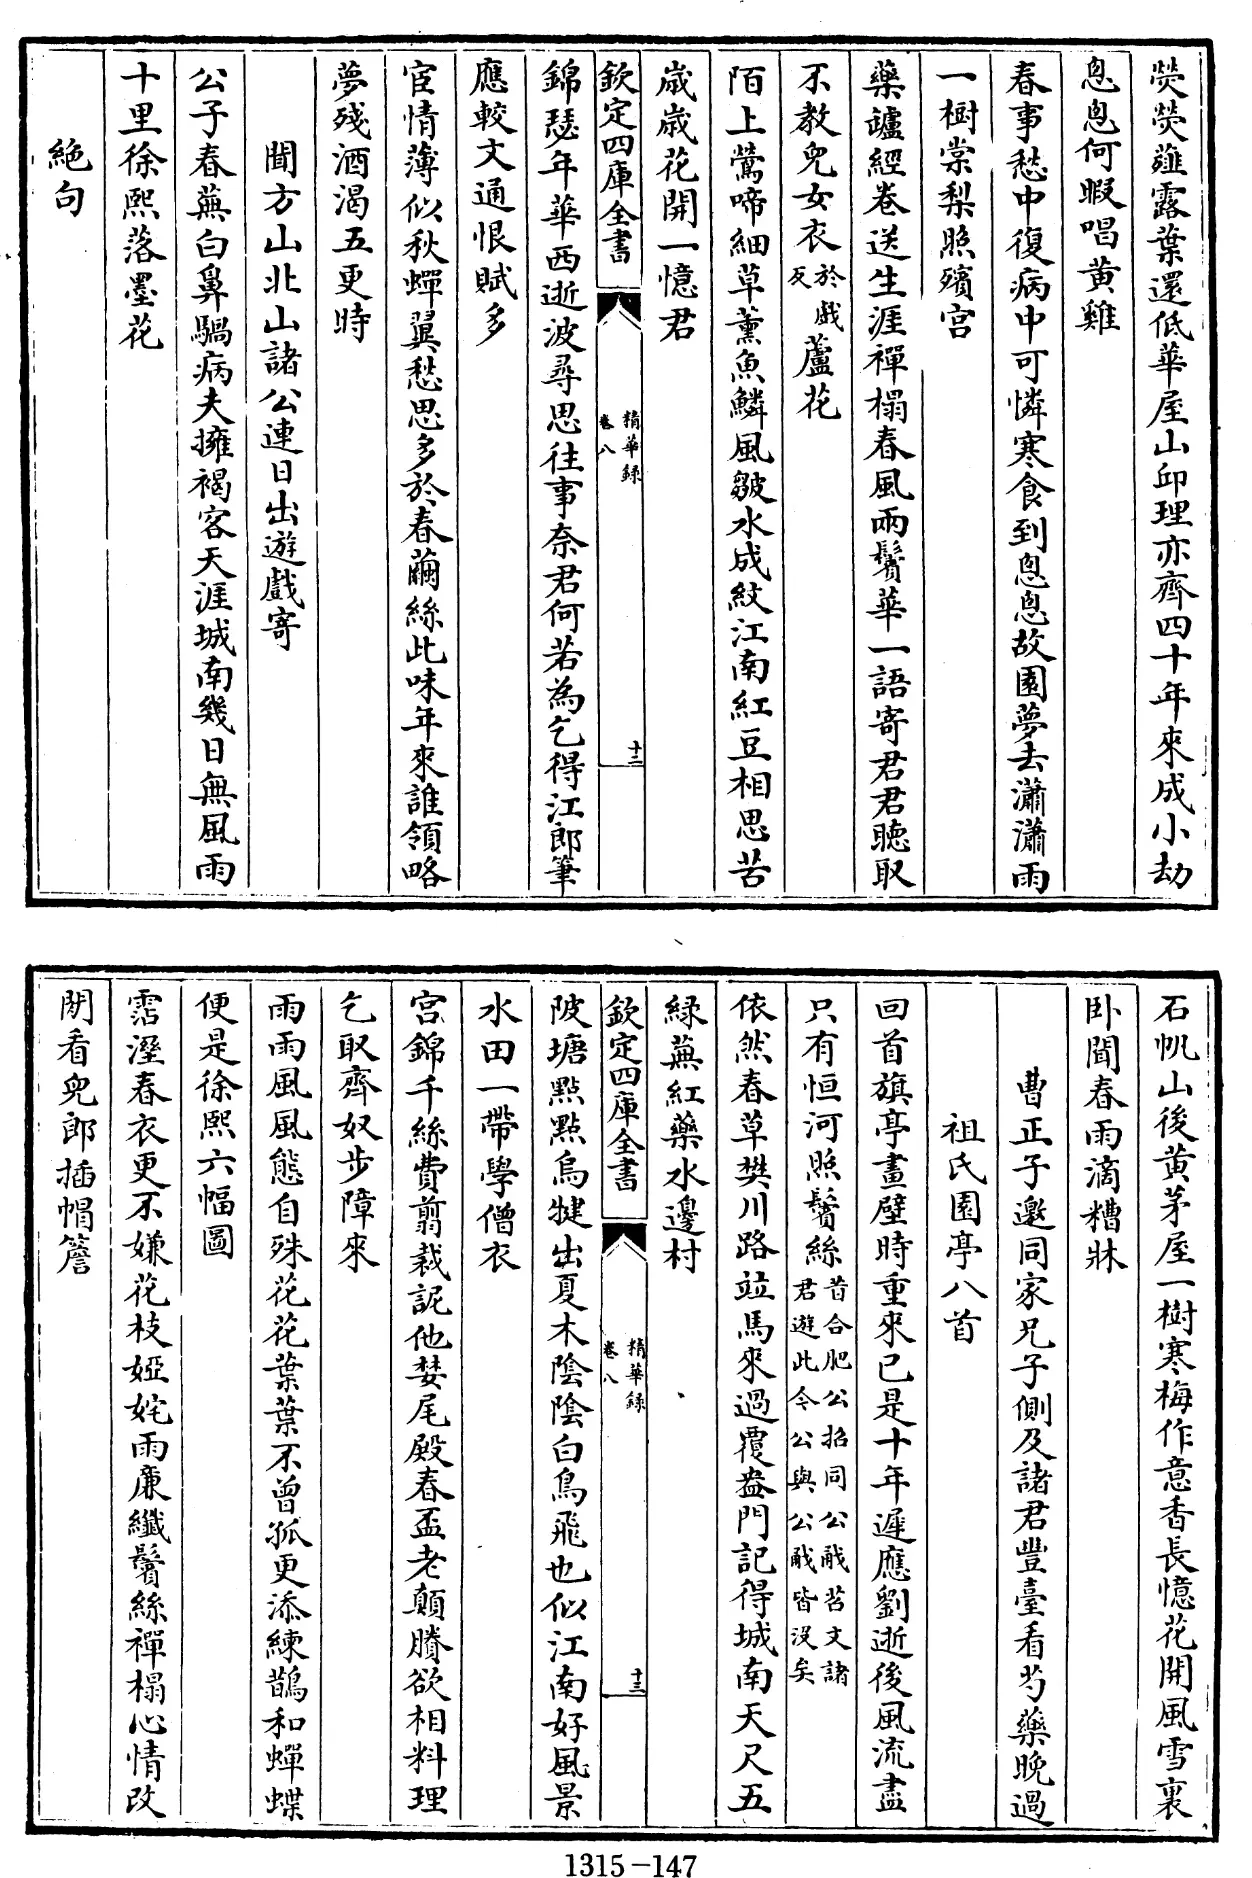 熒熒薤露葉還低華屋山邱理亦齊四十年來成小劫
悤悤何暇唱黃雞
春事愁中復病中可憐寒食到悤悤故園夢去瀟瀟雨
一樹棠梨照殯宫
藥罏經卷送生涯禪榻春風兩鬢華一語寄君君聽取
不教兒女衣於戲反蘆花
陌上鶯啼細草薰魚鱗風皺水成紋江南紅豆相思苦
歲歲花開一憶君
欽定四庫全書
精華録
卷八
十二
錦瑟年華西逝波尋思往事奈君何若為乞得江郎筆
應較文通恨賦多
宦情薄似秋蟬翼愁思多於春繭絲此味年來誰領略
夢殘酒渴五更時
聞方山北山諸公連日出遊戲寄
公子春蕪白鼻騧病夫擁褐客天涯城南幾日無風雨
十里徐熙落墨花
絶句
石帆山後黄茅屋一樹寒梅作意香長憶花開風雪裏
卧聞春雨滴糟牀
曹正子邀同家兄子側及諸君豐臺看芍藥晚過
祖氏園亭八首
回首旗亭畫壁時重來已是十年遲應劉逝後風流盡
只有恒河照鬢絲昔合肥公招同公㦷苕文諸
君遊此今公與公㦷皆没矣
依然春草樊川路竝馬來過覆盎門記得城南天尺五
緑蕪紅藥水邊村
欽定四庫全書
精華録
卷八
十三
陂塘點點烏犍出夏木陰陰白鳥飛也似江南好風景
水田一帶學僧衣
宫錦千絲費翦裁詑他婪尾殿春盃老顛賸欲相料理
乞取齊奴步障來
雨雨風風態自殊花花葉葉不曾孤更添練鵲和蟬蝶
便是徐熙六幅圖
霑溼春衣更不嫌花枝婭姹雨廉纖鬢絲禪榻心情改
閉看兒郎插帽簷
1315-147